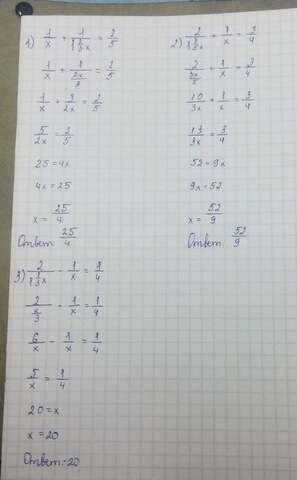 1) 1/x + 1/ = 2/5
1/x + 1/(2x/3) = 2/5
1/x + 3/2x = 2/5
5/2x = 2/5
25 = 4x
4x = 25
x = 25/4
Ответ 25/4
2) 2/ + 1/x = 3/4
2/(3x/5) + 1/x = 3/4
10/3x + 1/x = 3/4
13/3x = 3/4
52 = 9x
9x = 52
x = 52/9
Ответ 52/9
3) 2/ - 1/x = 1/4
2/(x/3) - 1/x = 1/4
6/x - 1/x = 1/4
5/x = 1/4
20 = x
x = 20
Ответ: 20